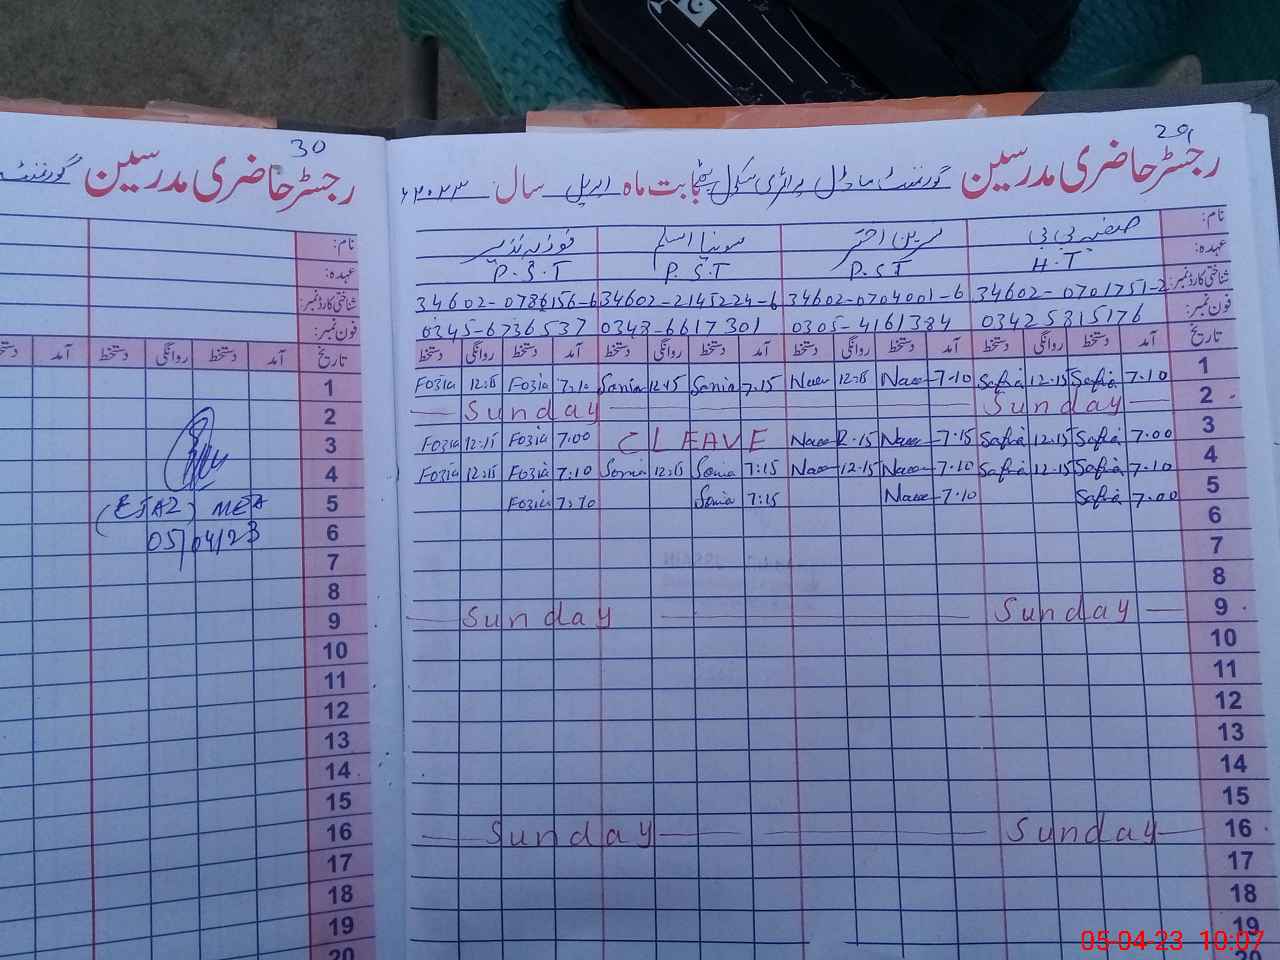 30
رجسٹر حاضری مدرسین گورنمنٹ
نام:
عہدہ:
شناختی کارڈ نمبر:
فون نمبر:
تاریخ آمد دستخط روانگی دستخط آمد دستخط
1
2
3
4
5 (EJAZ) MEA
6 05/04/23
7
8
9
10
11
12
13
14
15
16
17
18
19
20
29
رجسٹر حاضری مدرسین گورنمنٹ ماڈل پرائمری سکول بابت ماہ اپریل سال ۲۰۲۳ء
نام: صفیہ بی بی نسرین اختر سونیا اسلم فوزیہ نذیر
عہدہ: H.T P.S.T P.S.T P.S.T
شناختی کارڈ نمبر: 34602-0701751-2 34602-0704001-6 34602-2145224-6 34602-0786156-6
فون نمبر: 03425815176 0305-4161384 0343-6617301 0345-6736537
تاریخ آمد دستخط روانگی دستخط آمد دستخط روانگی دستخط آمد دستخط روانگی دستخط آمد دستخط روانگی دستخط
1 7.10 Safia 12.15 Safia 7.10 Nasr 12.15 Nasr 7.15 Sonia 12.15 Sonia 7.10 Fozia 12.15 Fozia
2 Sunday Sunday
3 7.00 Safia 12.15 Safia 7.15 Nasr 12.15 Nasr C LEAVE 7.00 Fozia 12.15 Fozia
4 7.10 Safia 12.15 Safia 7.10 Nasr 12.15 Nasr 7:15 Sonia 12.15 Sonia 7.10 Fozia 12.15 Fozia
5 7.00 Safia 7.10 Nasr 7:15 Sonia 7.10 Fozia
6
7
8
9 Sunday Sunday
10
11
12
13
14
15
16 Sunday Sunday
17
18
19
20
05-04-23 10:07